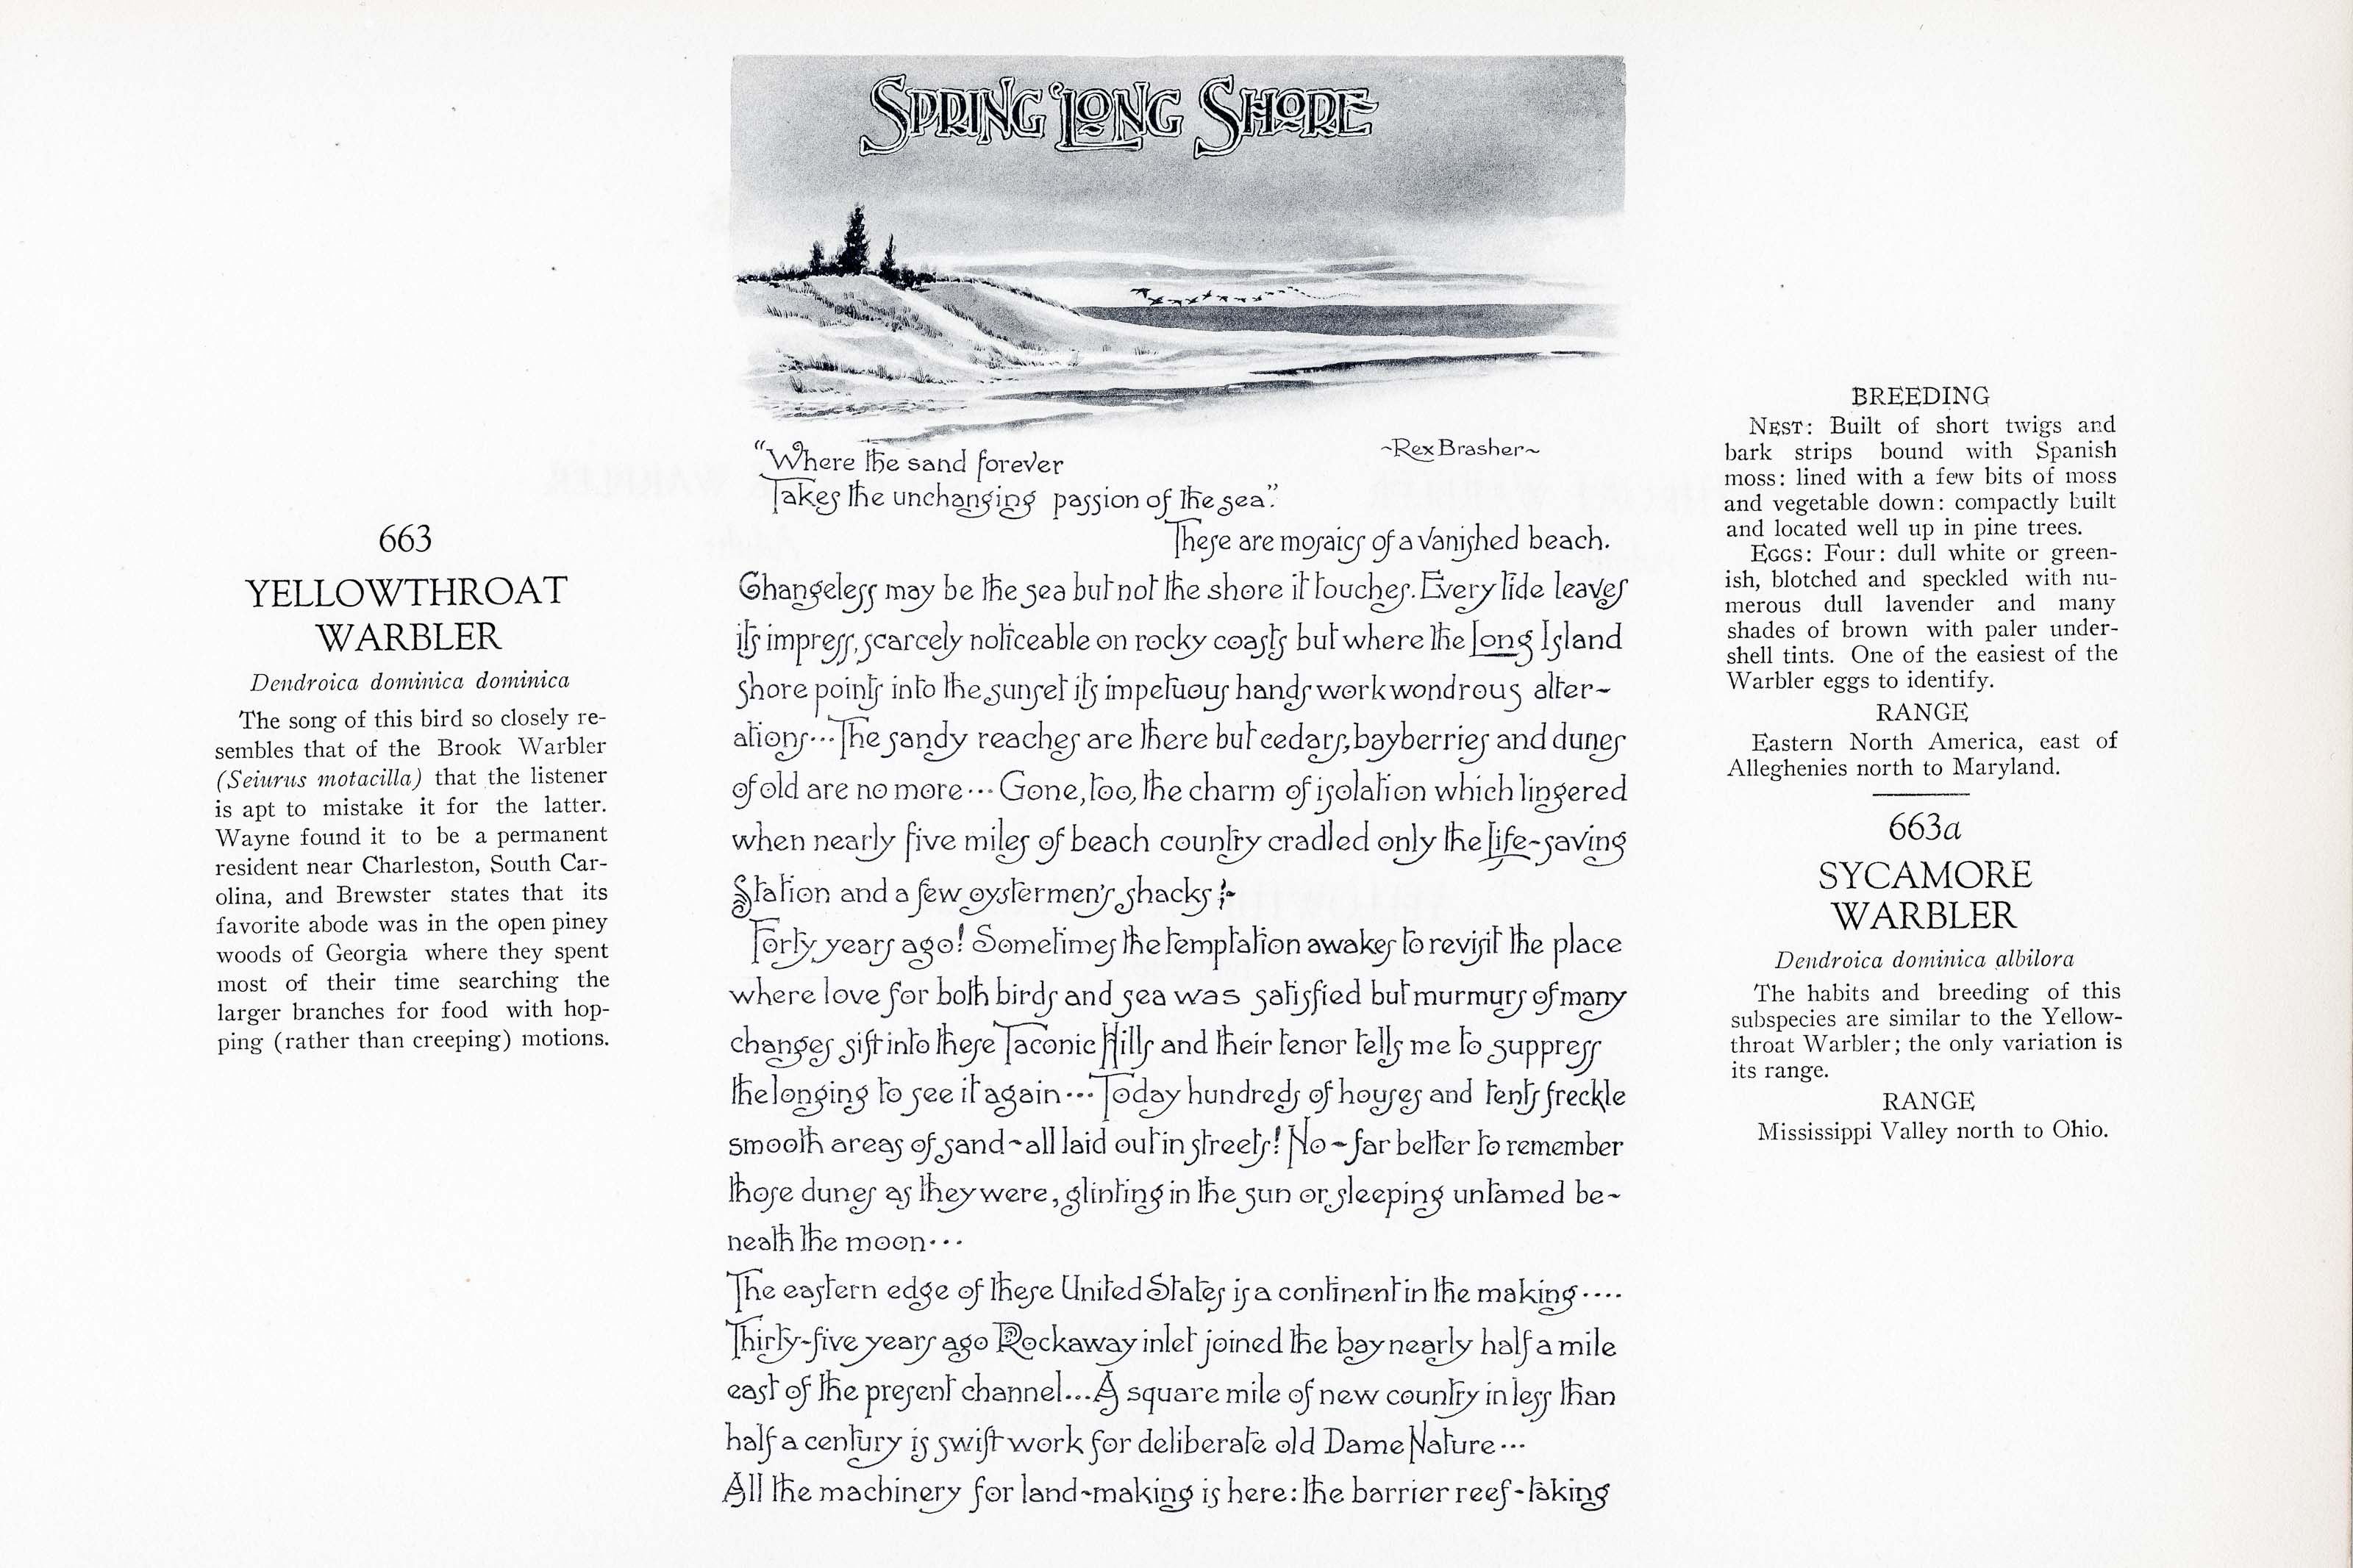 SPRING 'LONG SHORE
663
YELLOWTHROAT
WARBLER
Dendroica dominica dominica
The song of this bird so closely re-
sembles that of the Brook Warbler
(Seiurus motacilla) that the listener
is apt to mistake it for the latter.
Wayne found it to be a permanent
resident near Charleston, South Car-
olina, and Brewster states that its
favorite abode was in the open piney
woods of Georgia where they spent
most of their time searching the
larger branches for food with hop-
ping (rather than creeping) motions.
"Where the sand forever
~Rex Brasher~
Takes the unchanging passion of the sea."
These are mosaics of a vanished beach.
Changeless may be the sea but not the shore it touches. Every tide leaves
its impress, scarcely noticeable on rocky coasts but where the Long Island
shore points into the sunset its impetuous hands work wondrous alter~
ations... The sandy reaches are there but cedars, bayberries and dunes
of old are no more... Gone, too, the charm of isolation which lingered
when nearly five miles of beach country cradled only the Life-saving
Station and a few oystermen's shacks:~
Forty years ago! Sometimes the temptation awakes to revisit the place
where love for both birds and sea was satisfied but murmurs of many
changes sift into these Taconic Hills and their tenor tells me to suppress
the longing to see it again... Today hundreds of houses and tents freckle
smooth areas of sand~all laid out in streets! No~far better to remember
those dunes as they were, glinting in the sun or sleeping untamed be~
neath the moon...
The eastern edge of these United States is a continent in the making....
Thirty-five years ago Rockaway inlet joined the bay nearly half a mile
east of the present channel... A square mile of new country in less than
half a century is swift work for deliberate old Dame Nature...
All the machinery for land-making is here: the barrier reef-taking
BREEDING
NEST: Built of short twigs and
bark strips bound with Spanish
moss: lined with a few bits of moss
and vegetable down: compactly built
and located well up in pine trees.
EGGS: Four: dull white or green-
ish, blotched and speckled with nu-
merous dull lavender and many
shades of brown with paler under-
shell tints. One of the easiest of the
Warbler eggs to identify.
RANGE
Eastern North America, east of
Alleghenies north to Maryland.
663a
SYCAMORE
WARBLER
Dendroica dominica albilora
The habits and breeding of this
subspecies are similar to the Yellow-
throat Warbler; the only variation is
its range.
RANGE
Mississippi Valley north to Ohio.